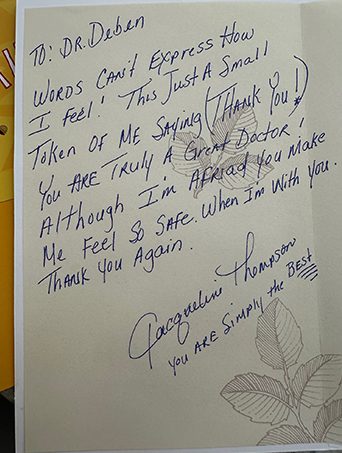 To: DR. Deben
WORDS CAN'T EXPRESS HOW
I FEEL! THIS JUST A SMALL
TOKEN OF ME SAYING (THANK YOU!)
YOU ARE TRULY A GREAT DOCTOR!
Although I'm AFRIAD YOU MAKE
ME FEEL SO SAFE. WHEN I'M WITH YOU.
THANK YOU Again.
Jacqueline Thompson
YOU ARE SIMPLY the BEST